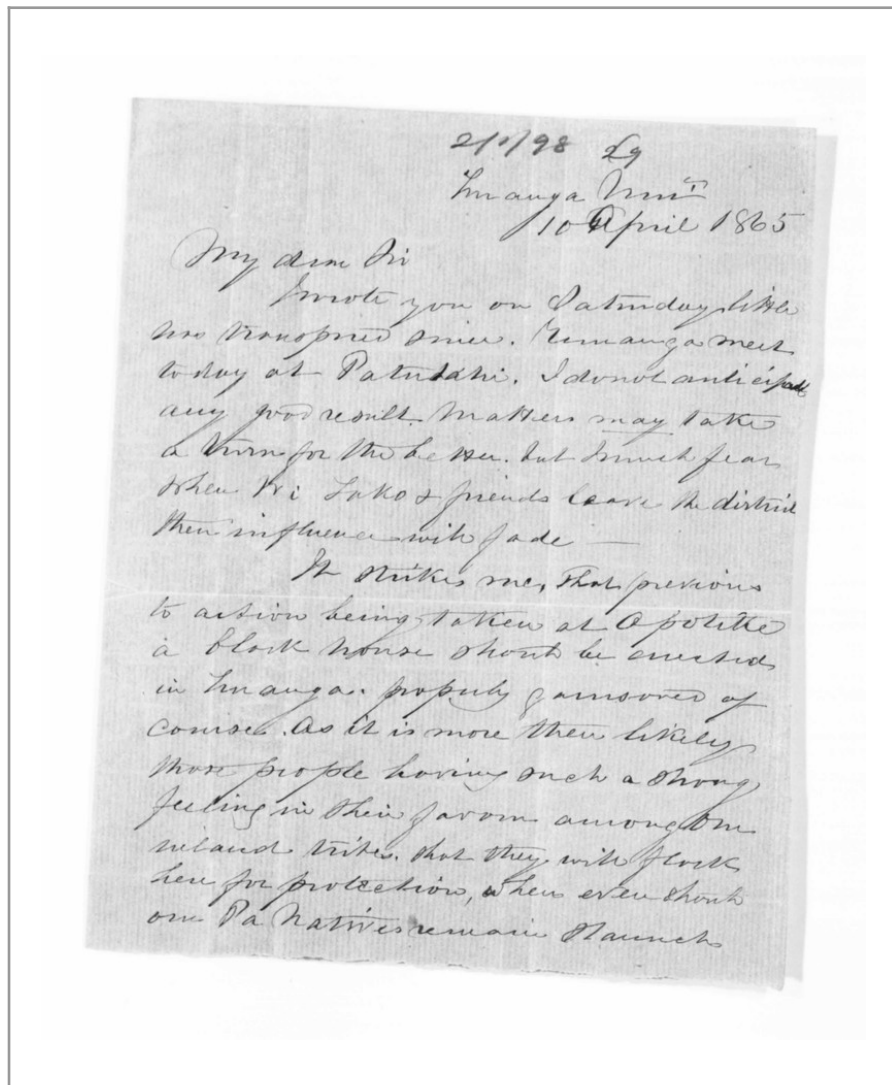 2/1/98 29
Turanga Nui
10 April 1865
My dear Sir
I wrote you on Saturday, little
has transpired since. Turanga meet
to day at Patutahi. I do not anticipate
any good result. Matters may take
a turn for the better. but I much fear
when Wi Tako & friends leave the district
their influence will fade —
It strikes me, that previous
to action being taken at Opotiki
a block house should be erected
in Turanga. properly garrisoned of
course. As it is more then likely
those people having such a strong
feeling in their favour among our
inland tribes. that they will flock
here for protection, when even should
our Pa Natives remain staunch